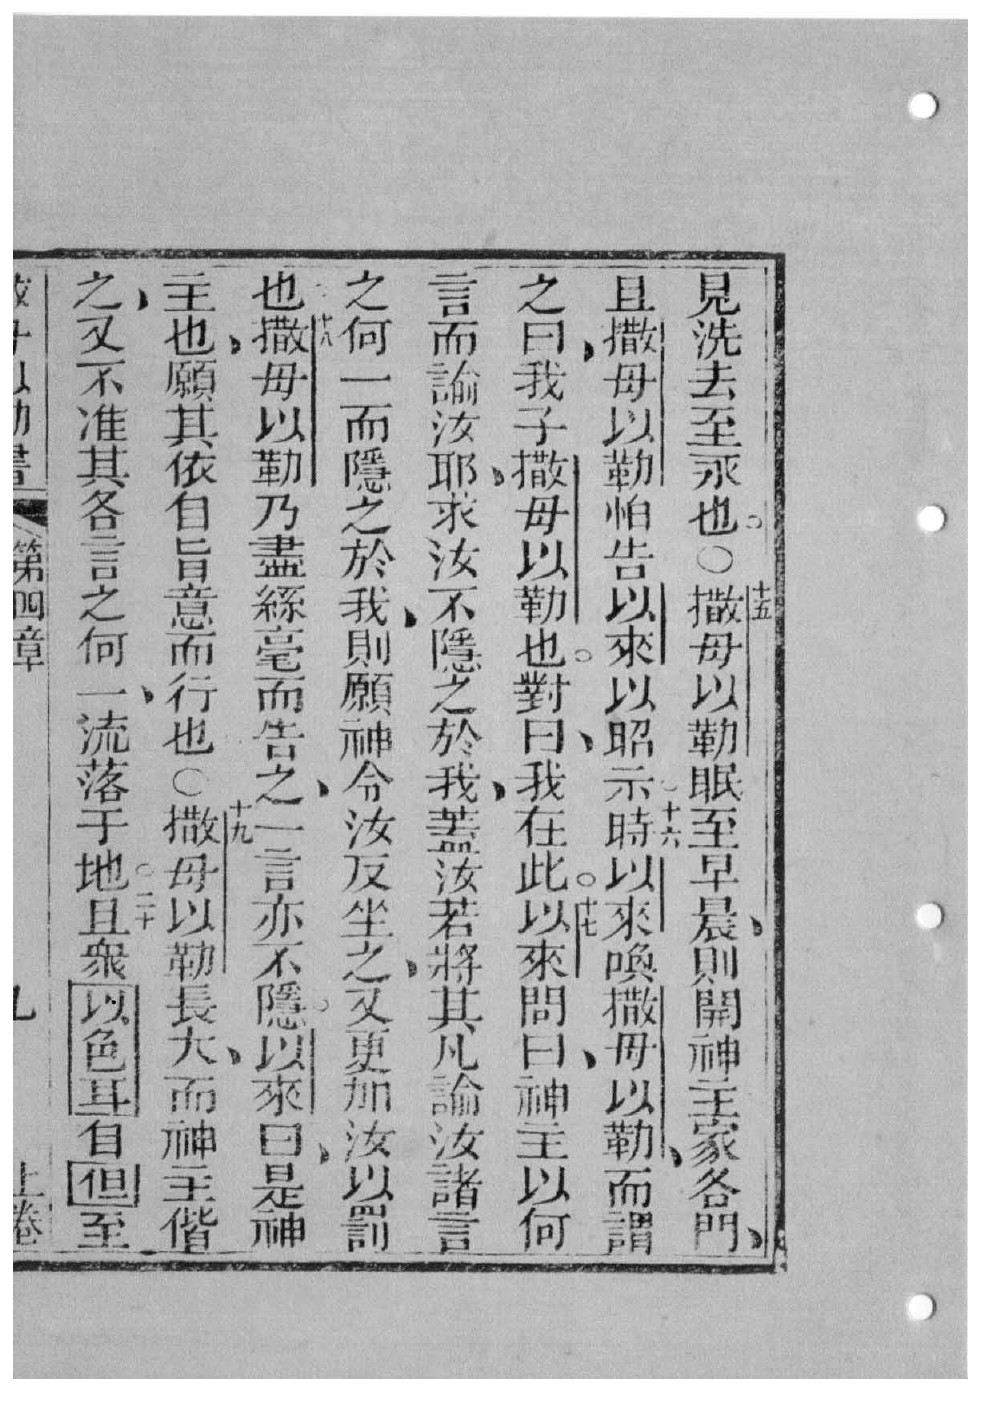 見洗去至永也。○十五撒母以勒眠至早晨、則開神主家各門、
且撒母以勒怕告以來以昭示時。十六以來喚撒母以勒、而謂
之曰、我子撒母以勒也。對曰、我在此。十七以來問曰、神主以何
言而諭汝耶、求汝不隱之於我、蓋汝若將其凡諭汝諸言
之何一而隱之於我、則願神令汝反坐之、又更加汝以罰
也。十八撒母以勒乃盡絲毫而告之、一言亦不隱。以來曰、是神
主也、願其依自旨意而行也○十九撒母以勒長大、而神主偕
之、又不准其各言之何一、流落于地。二十且衆以色耳自但至
母以勒書
第四章
上卷